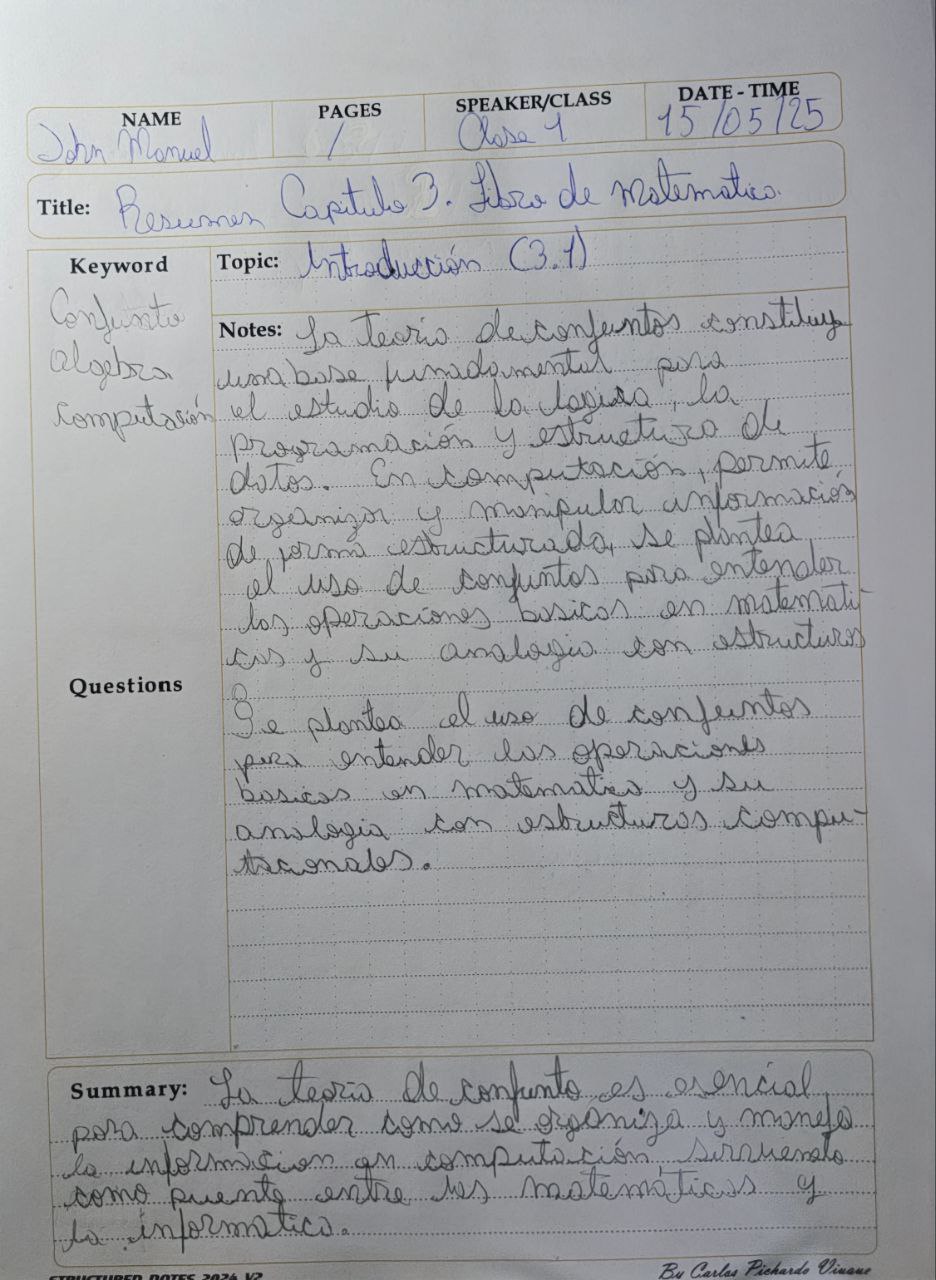 NAME PAGES SPEAKER/CLASS DATE - TIME
John Manuel / Clase 1 15/05/25
Title: Resumen Capitulo 3. Libro de matematica.
Keyword
Conjunto
algebra
computación
Topic: Introducción (3.1)
Notes: La teoria de conjuntos constituye
una base funadamental para
el estudio de la logica, la
programación y estructura de
datos. En computación, permite
organizar y manipular información
de forma estructurada, se plantea
el uso de conjuntos para entender
las operaciones basicas en matemati-
cas y su analogia con estructuras
Questions
Se plantea el uso de conjuntos
para entender las operaciones
basicas en matematica y su
analogia con estructuras compu-
tacionales.
Summary: La teoria de conjunto es esencial
para comprender como se organiza y maneja
la informacion en computación, sirviendo
como puente entre las matemáticas y
la informatica.
STRUCTURED NOTES 2024 V2
By Carlos Pichardo Viuque